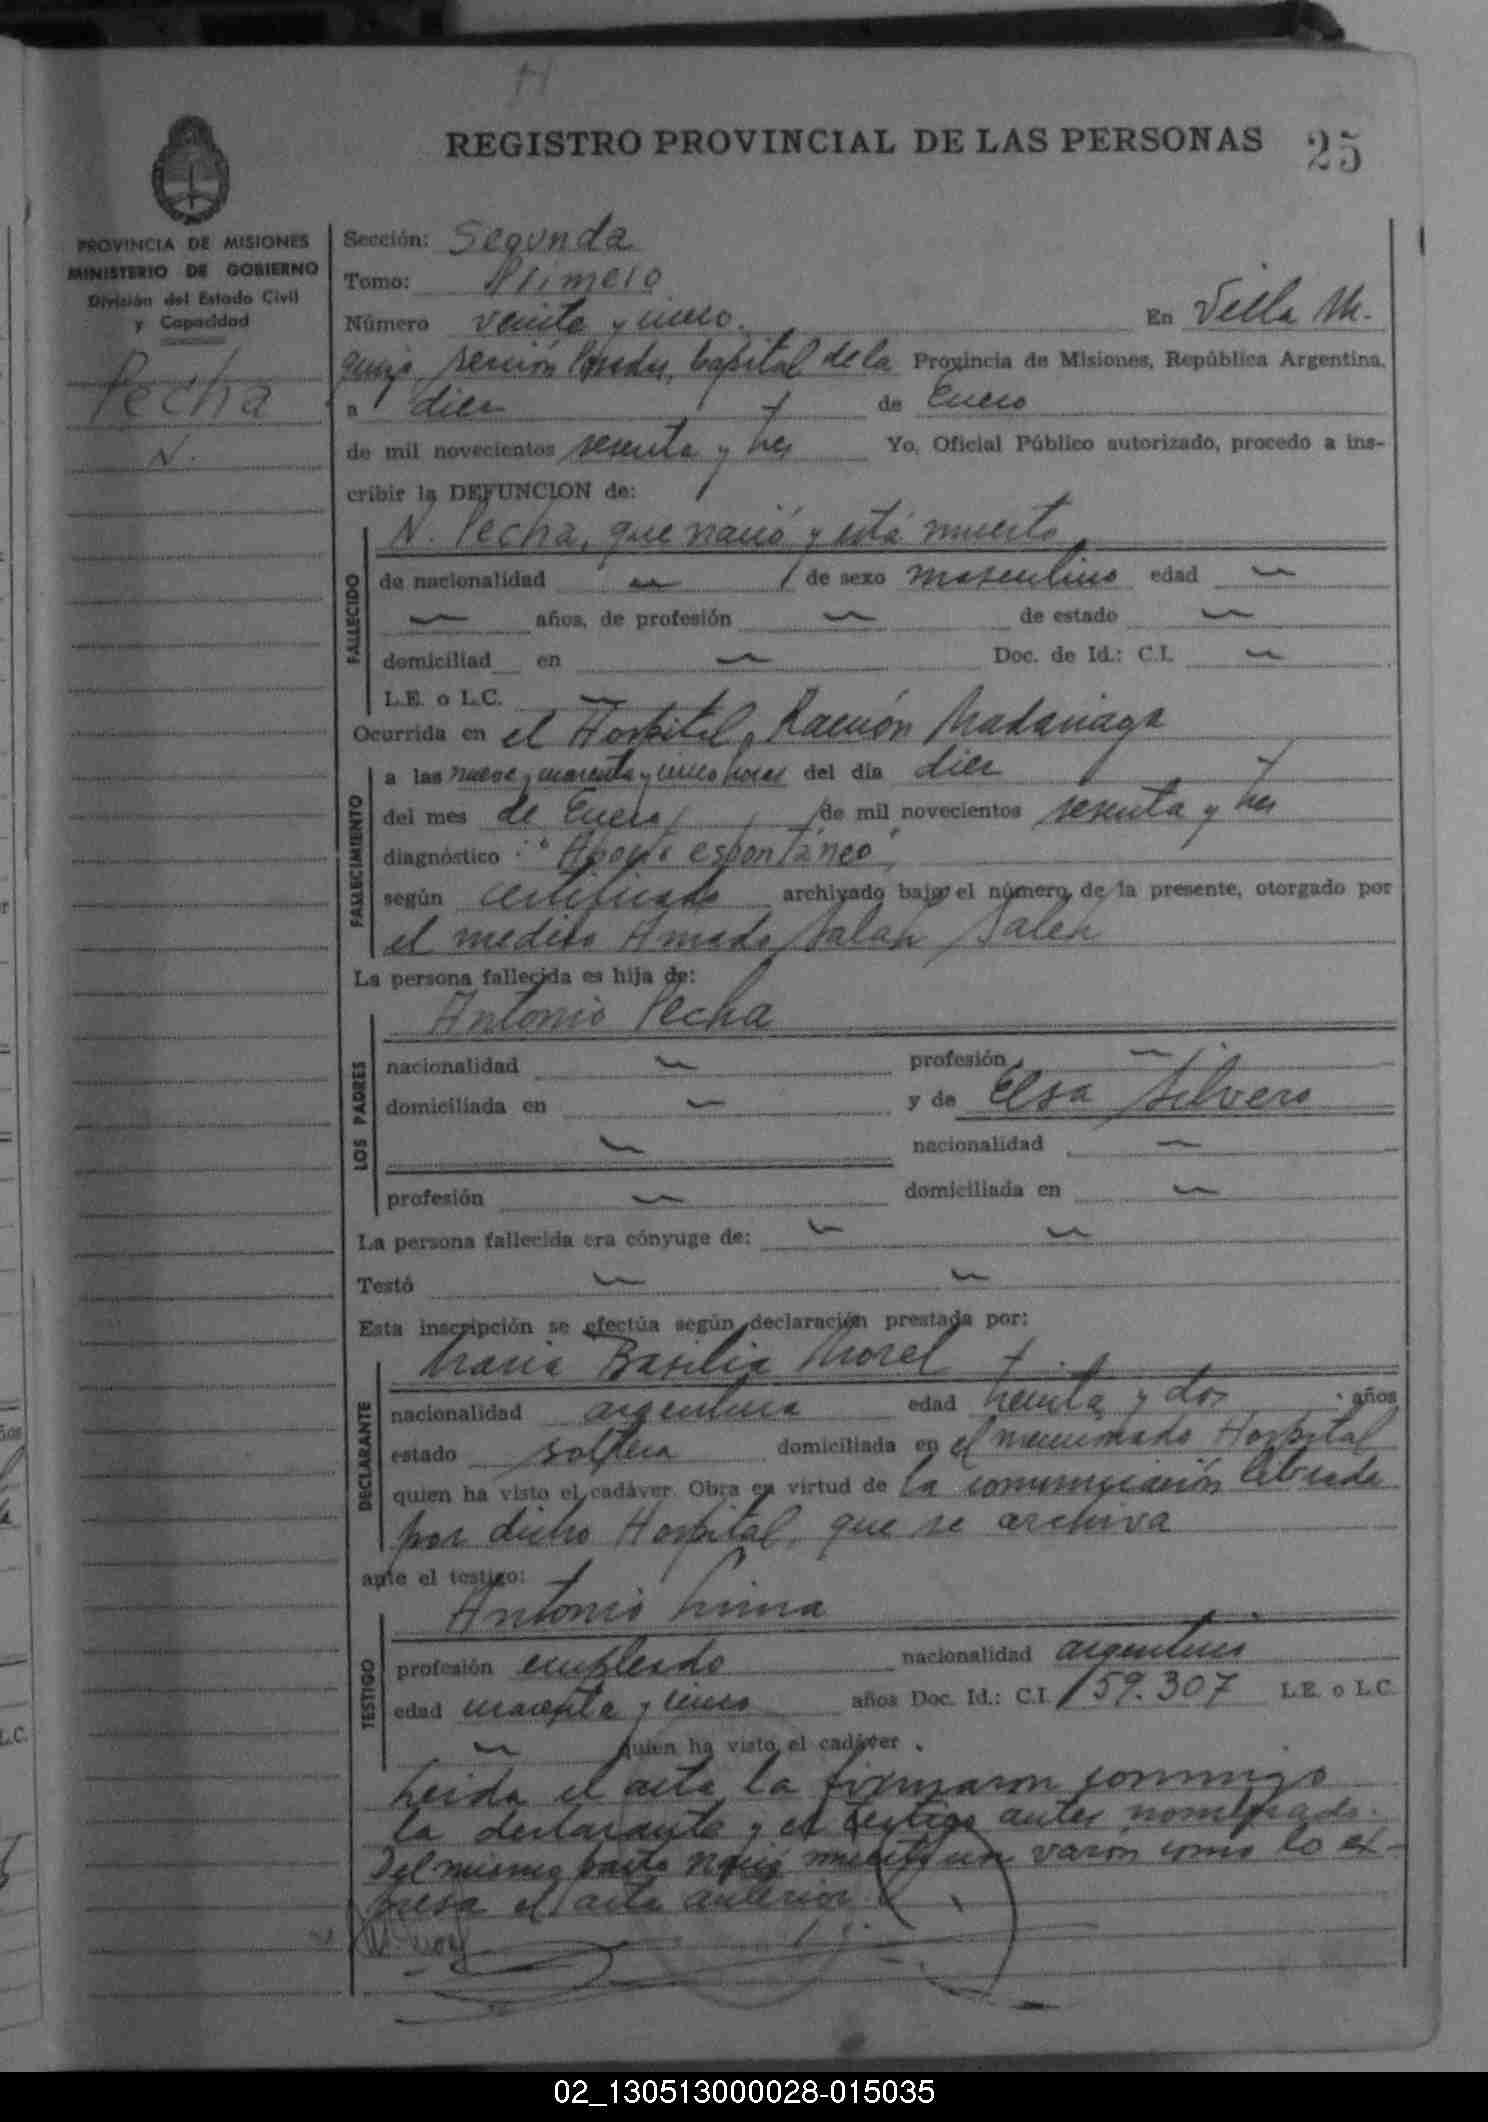 REGISTRO PROVINCIAL DE LAS PERSONAS 25
PROVINCIA DE MISIONES
MINISTERIO DE GOBIERNO
División del Estado Civil
y Capacidad
Pecha
N.
Sección: Segunda
Tomo: Primero
Número veinte y cinco. En Villa M.
Capital de la Provincia de Misiones, República Argentina,
a diez de Enero
de mil novecientos sesenta y tres Yo, Oficial Público autorizado, procedo a ins-
cribir la DEFUNCION de:
N. Pecha, que nació y está muerto
FALLECIDO
de nacionalidad de sexo masculino edad
años, de profesión de estado
domiciliad en Doc. de Id.: C.I.
L.E. o L.C.
Ocurrida en el Hospital Ramón Madariaga
FALLECIMIENTO
a las nueve y cuarenta y cinco horas del día diez
del mes de Enero de mil novecientos sesenta y tres
diagnóstico : "Aborto espontáneo"
según certificado archivado bajo el número de la presente, otorgado por
el medico Amado Salah Saleh
La persona fallecida es hija de:
LOS PADRES
Antonio Pecha
nacionalidad profesión
domiciliada en y de Elsa Silvero
nacionalidad
profesión domiciliada en
La persona fallecida era cónyuge de:
Testó
Esta inscripción se efectúa según declaración prestada por:
DECLARANTE
Maria Basilia Morel
nacionalidad argentina edad treinta y dos años
estado soltera domiciliada en el mencionado Hospital
quien ha visto el cadáver. Obra en virtud de la comunicación librada
por dicho Hospital, que se archiva
ante el testigo:
TESTIGO
Antonio
profesión empleado nacionalidad argentino
edad cuarenta y cinco años Doc. Id.: C.I. 159.307 L.E. o L.C.
quien ha visto el cadáver .
Leida el acta la firmaron conmigo
la declarante y el testigo antes nombrado.
Del mismo parto nació muerto un varón como lo ex-
presa el acta anterior
02_130513000028-015035